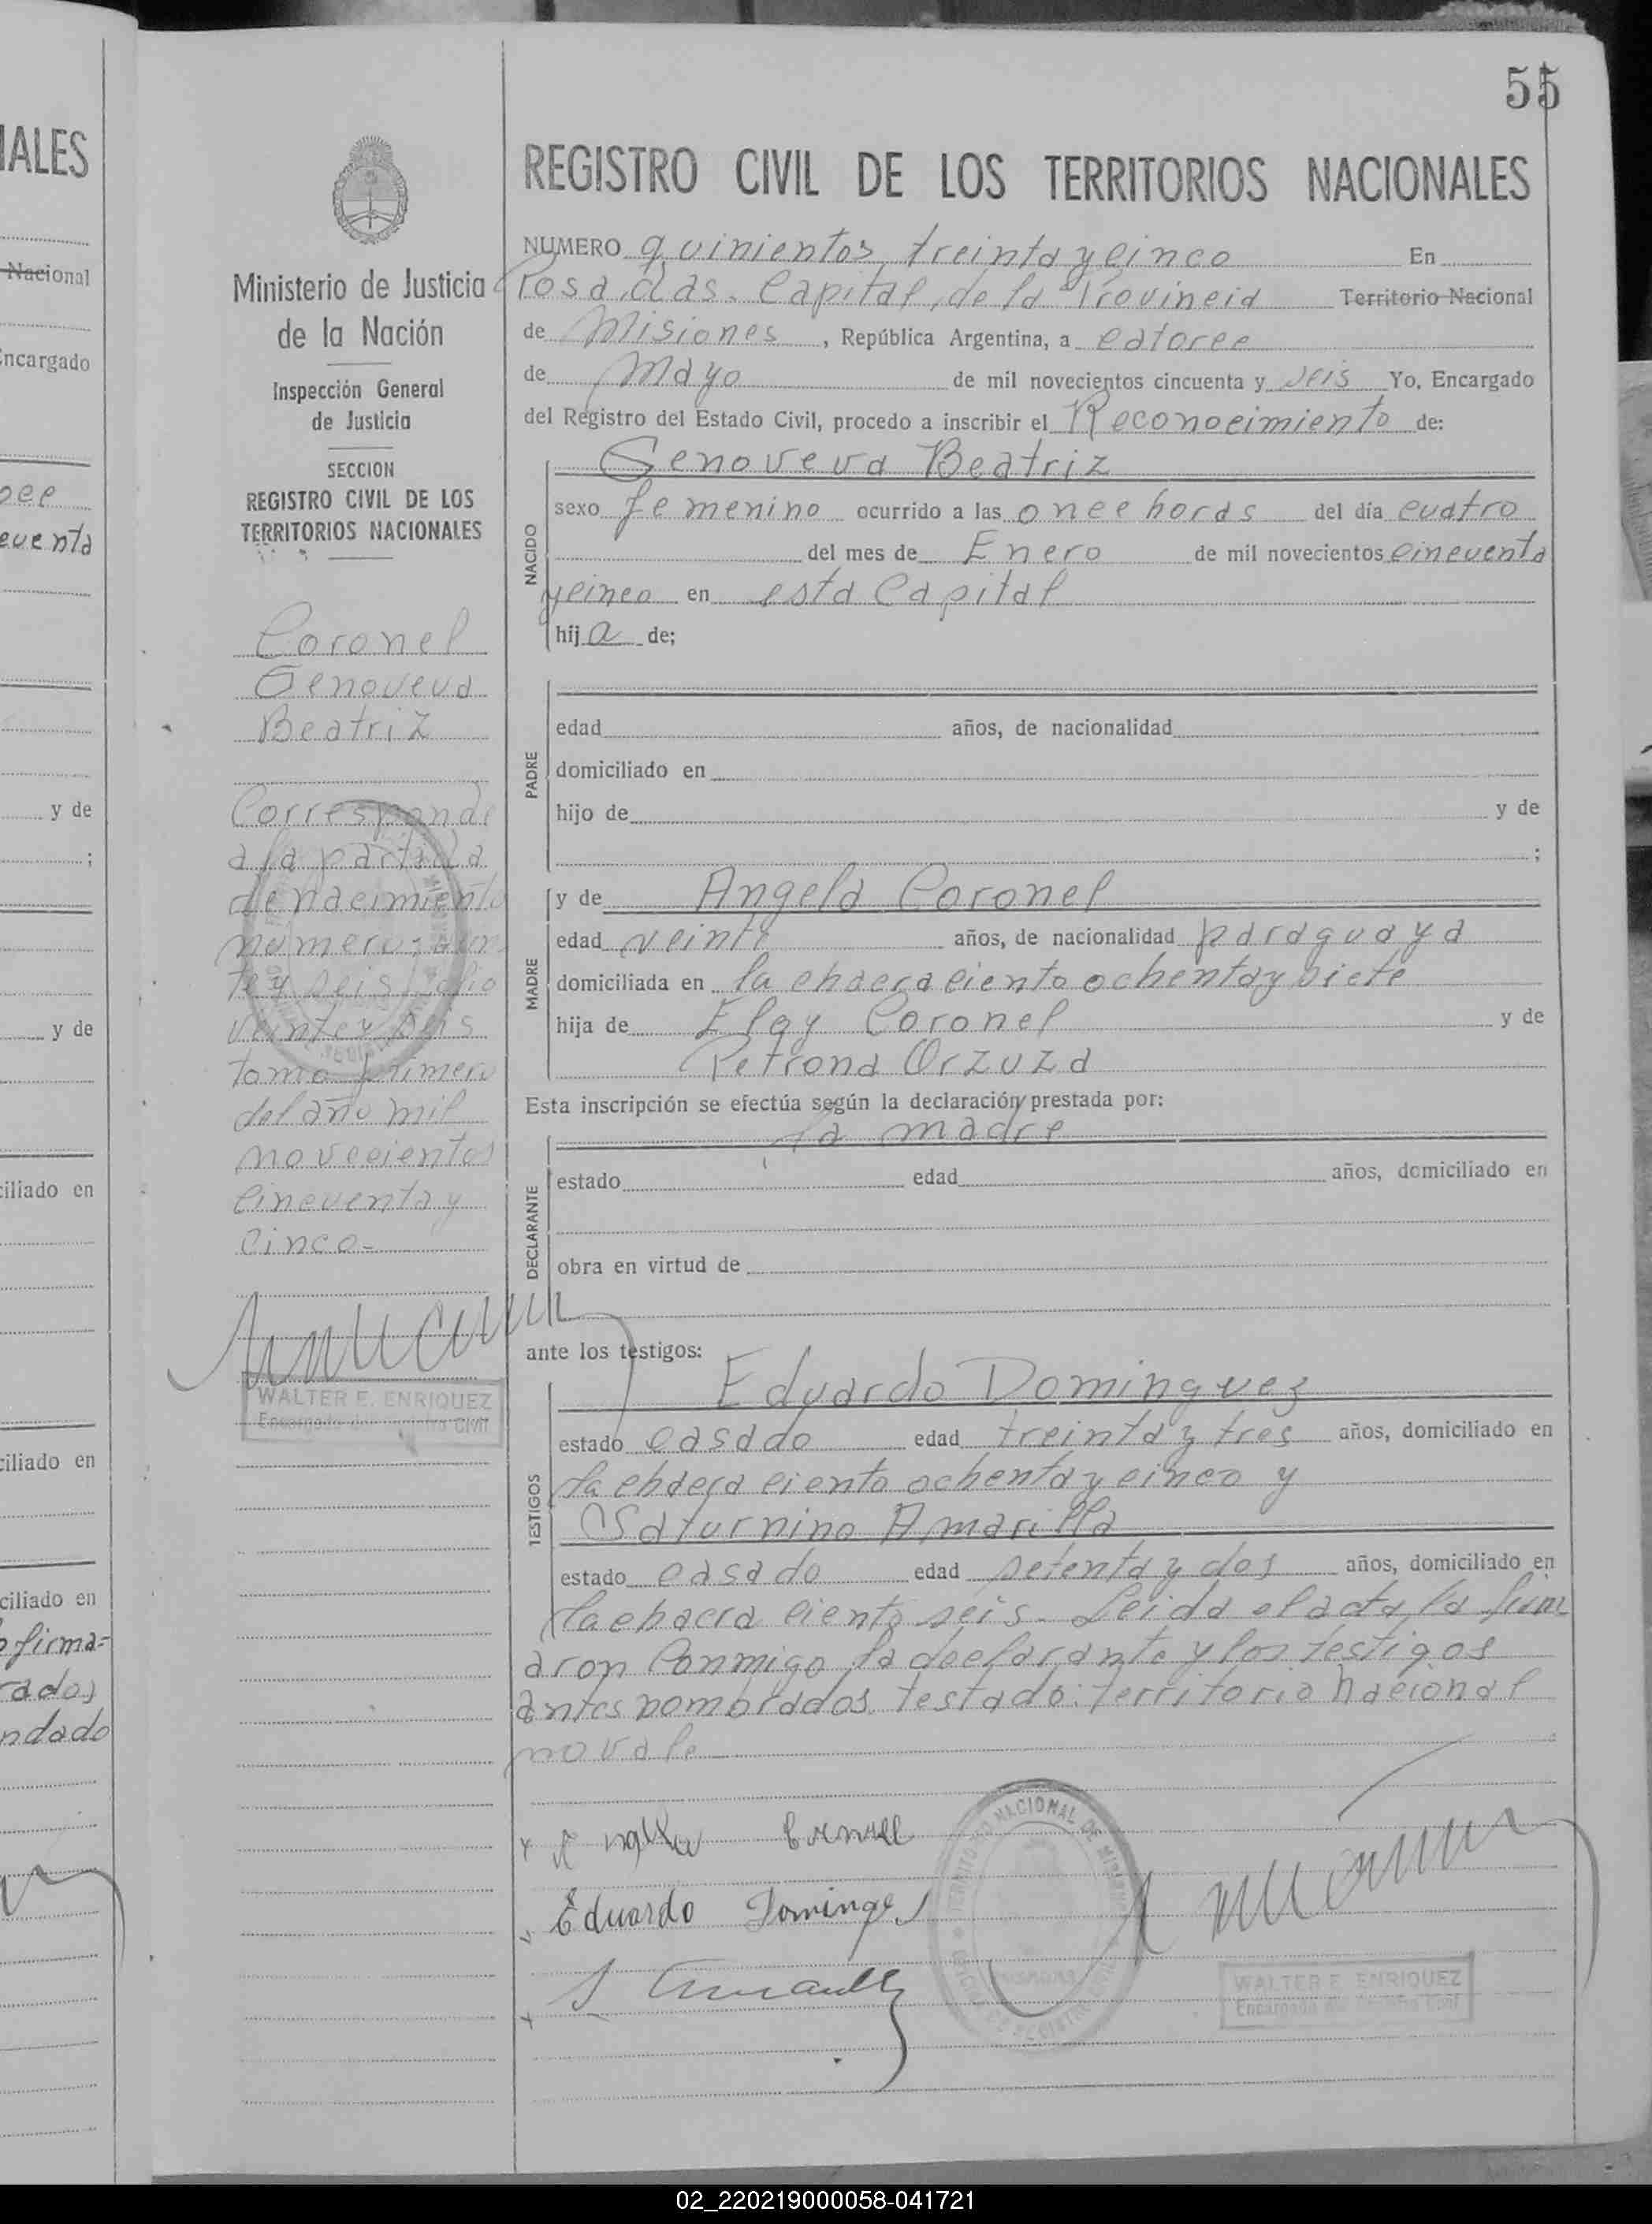 55
IALES
Nacional
Encargado
y de
;
y de
ciliado en
ciliado en
ciliado en
firma=
ndado
Ministerio de Justicia
de la Nación
Inspección General
de Justicia
SECCION
REGISTRO CIVIL DE LOS
TERRITORIOS NACIONALES
Coronel
Genoveva
Beatriz
Corresponde
a la partida
de nacimiento
numero: vein
te y seis folio
veinte y seis
tomo primero
del año mil
novecientos
cincuenta y
cinco.-
WALTER E. ENRIQUEZ
Encargado del Registro Civil
REGISTRO CIVIL DE LOS TERRITORIOS NACIONALES
NUMERO quinientos treinta y cinco En
Posadas. Capital, de la Provincia Territorio Nacional
de Misiones, República Argentina, a catorce
de Mayo de mil novecientos cincuenta y seis Yo, Encargado
del Registro del Estado Civil, procedo a inscribir el Reconocimiento de:
NACIDO
Genoveva Beatriz
sexo femenino ocurrido a las once horas del día cuatro
del mes de Enero de mil novecientos cincuenta
y cinco en esta Capital
hija de;
PADRE
edad años, de nacionalidad
domiciliado en
hijo de y de
;
MADRE
y de Angela Coronel
edad veinte años, de nacionalidad paraguaya
domiciliada en la chacra ciento ochenta y siete
hija de Eloy Coronel y de
Petrona Orzuza
Esta inscripción se efectúa según la declaración prestada por:
DECLARANTE
la madre
estado edad años, domiciliado en
obra en virtud de
ante los testigos:
TESTIGOS
Eduardo Dominguez
estado casado edad treinta y tres años, domiciliado en
la chacra ciento ochenta y cinco y
Saturnino Amarilla
estado casado edad setenta y dos años, domiciliado en
la chacra ciento seis. Leida el acta, la firm
aron conmigo la declarante y los testigos
antes nombrados. testado: territorio nacional
no vale
Eduardo Domingez
TERRITORIO NACIONAL DE MISIONES
WALTER E. ENRIQUEZ
Encargado del Registro Civil
02_220219000058-041721